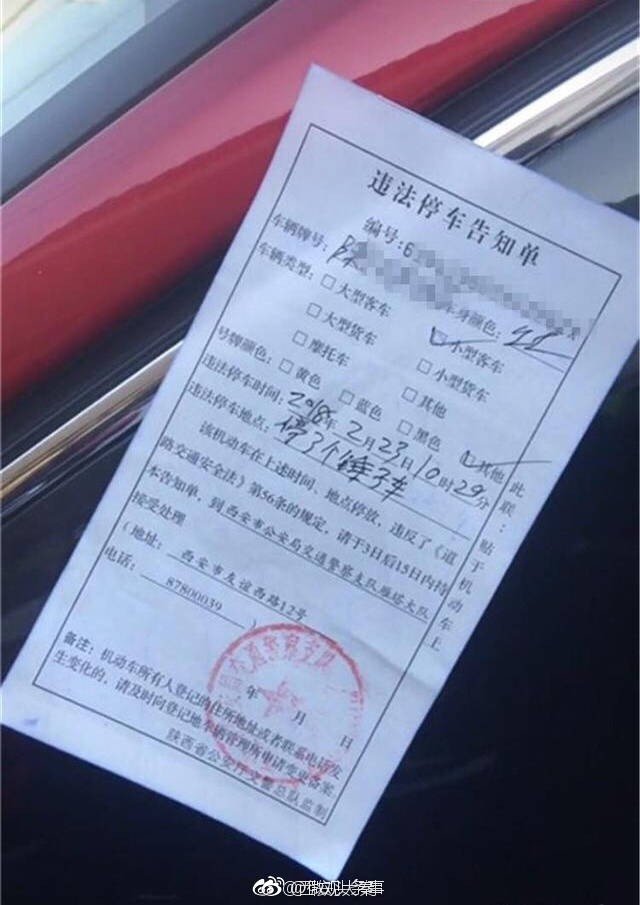 违法停车告知单
编号:6
车辆牌号: 陕 车身颜色: 红
车辆类型: □大型客车 ☑小型客车
□大型货车 □小型货车
□摩托车 □其他
号牌颜色: □黄色 □蓝色 □黑色 ☑其他
违法停车时间: 2018年2月23日10时29分
违法停车地点: 停了个锤子车
该机动车在上述时间、地点停放,违反了《道
路交通安全法》第56条的规定,请于3日后15日内持
本告知单,到西安市公安局交通警察支队雁塔大队
接受处理
(地址: 西安市友谊西路12号
电话: 87800039 )
年 月 日
备注:机动车所有人登记的住所地址或者联系电话发
生变化的,请及时向登记地车辆管理所申请变更备案
陕西省公安厅交警总队监制
此联:贴于机动车上